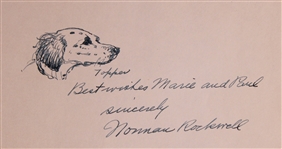 Topper
Best wishes Marie and Paul
sincerely
Norman Rockwell